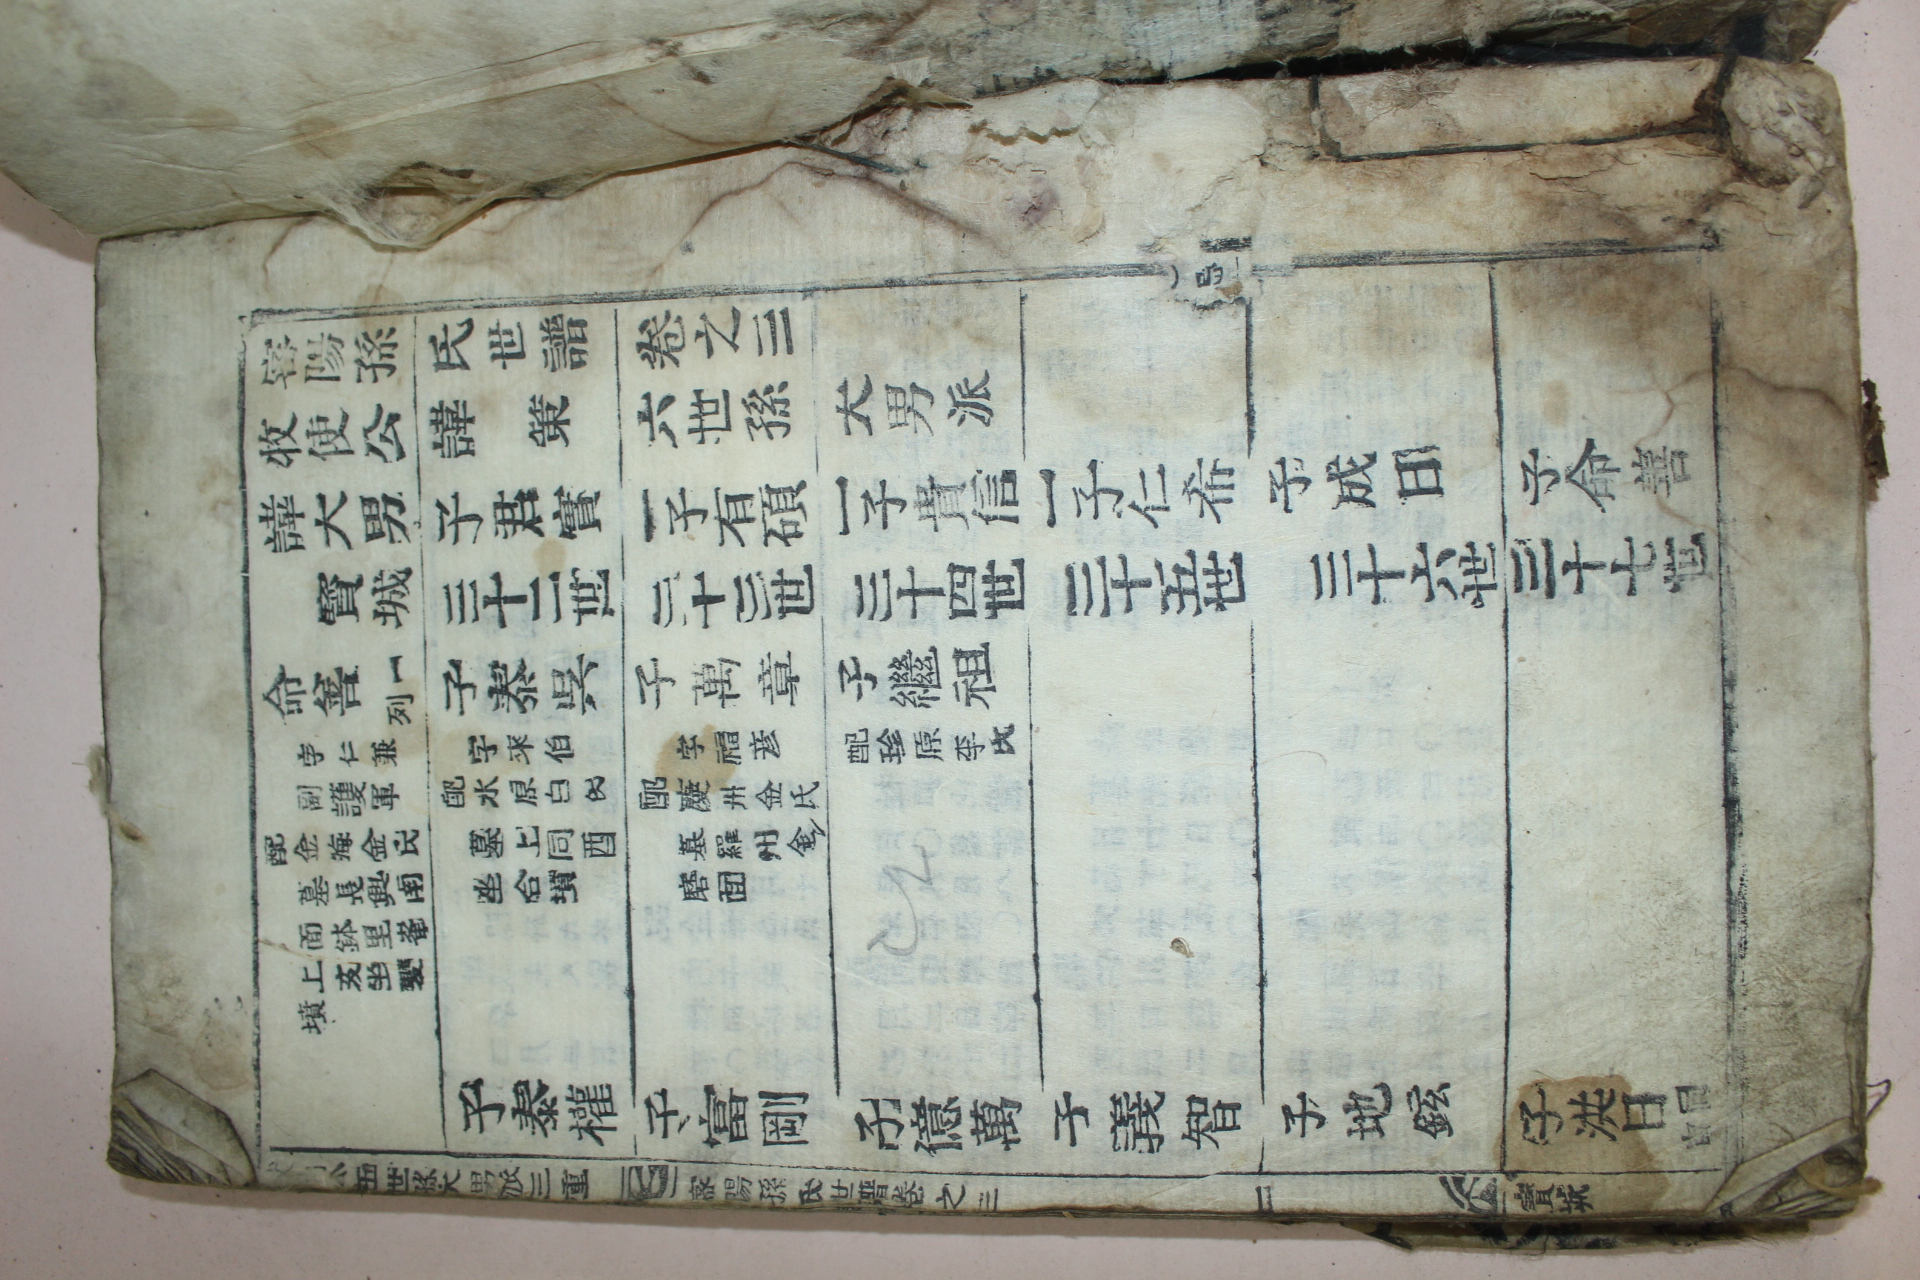 密陽孫氏世譜卷之三
牧使公諱策六世孫大男派
諱大男 子君實 一子有碩 一子貴信 一子仁希 子成日 子命善
寶城 三十二世 三十三世 三十四世 三十五世 三十六世 三十七世
命善 一列 子泰吳 子萬章 子繼祖
字仁兼 字來伯 字福彦 配珍原李氏
副護軍 配水原白氏 配慶州金氏
配金海金氏 墓上同酉 墓羅州金
墓長興南 坐合墳 磨面
面鉢里峯
上亥坐雙
墳
子泰權 子富剛 子億萬 子義智 子地鉉 子洪日
五世孫大男派三重 密陽孫氏世譜卷之三 一 寶城